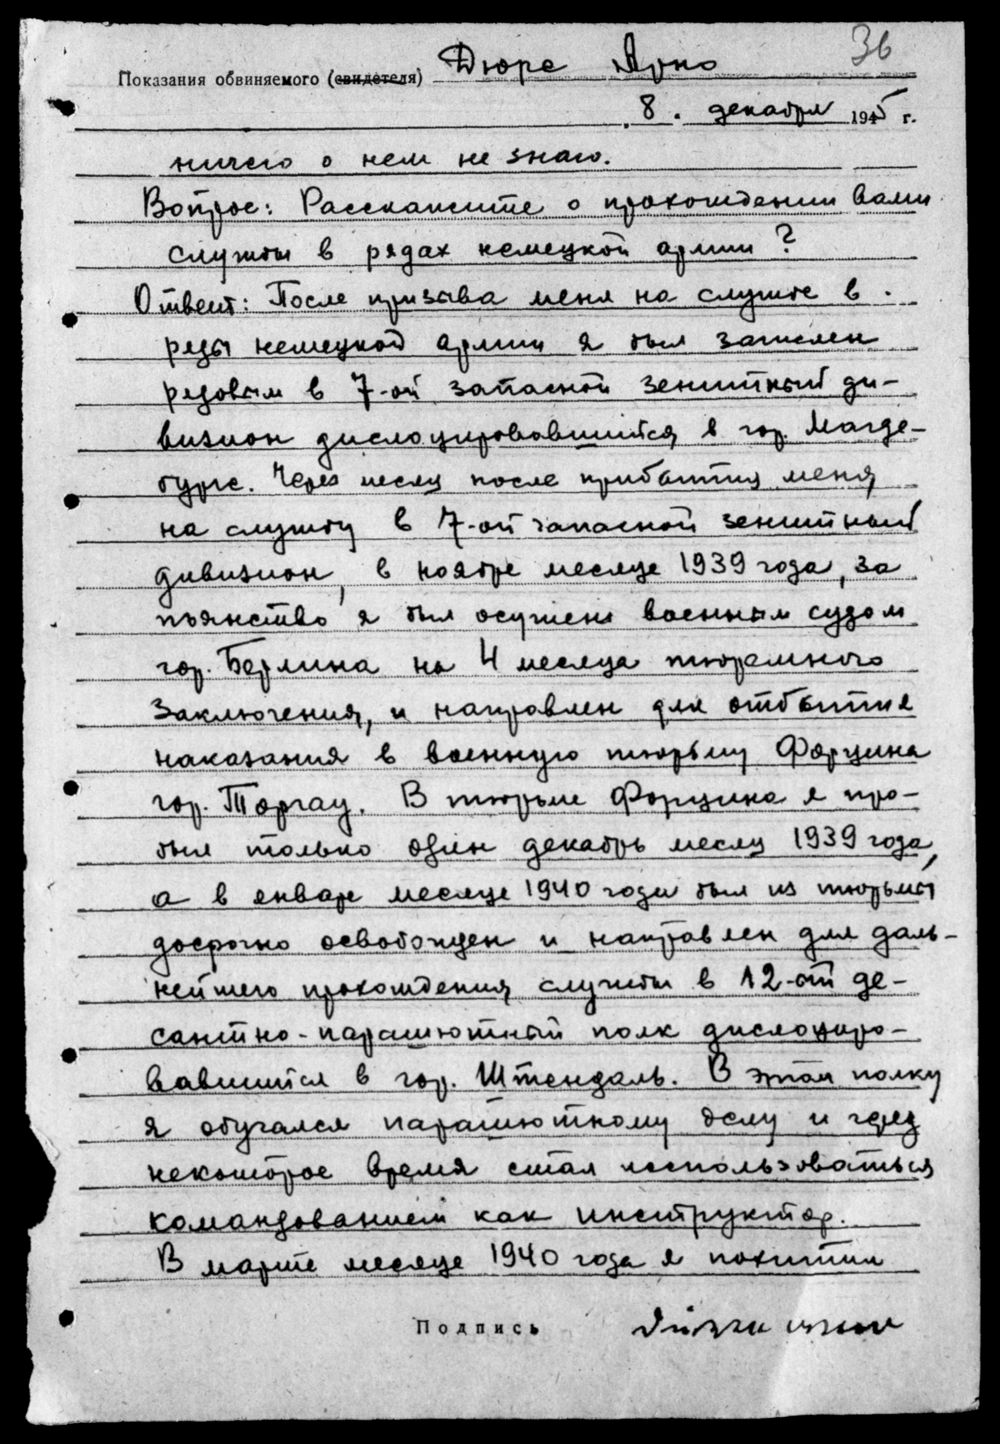 36
Показания обвиняемого (свидетеля) Дюре Арно
8. декабря 1945 г.
ничего о нем не знаю.
Вопрос: Расскажите о прохождении вами
службы в рядах немецкой армии?
Ответ: После призыва меня на службе в
ряды немецкой армии я был зачислен
рядовым в 7-ой запасной зенитный ди-
визион дислоцировавшийся в гор. Магде-
бурге. Через месяц после прибытия меня
на службу в 7-ой запасной зенитный
дивизион, в ноябре месяце 1939 года, за
пьянство я был осужден военным судом
гор. Берлина на 4 месяца тюремного
заключения, и направлен для отбытия
наказания в военную тюрьму Форцина
гор. Торгау. В тюрьме Форцина я про-
был только один декабрь месяц 1939 года,
а в январе месяце 1940 года был из тюрьмы
досрочно освобожден и направлен для даль-
нейшего прохождения службы в 12-ой де-
сантно-парашютный полк дислоциро-
вавшийся в гор. Штендаль. В этом полку
я обучался парашютному делу и через
некоторое время стал использоваться
командованием как инструктор.
В марте месяце 1940 года я похитил
Подпись